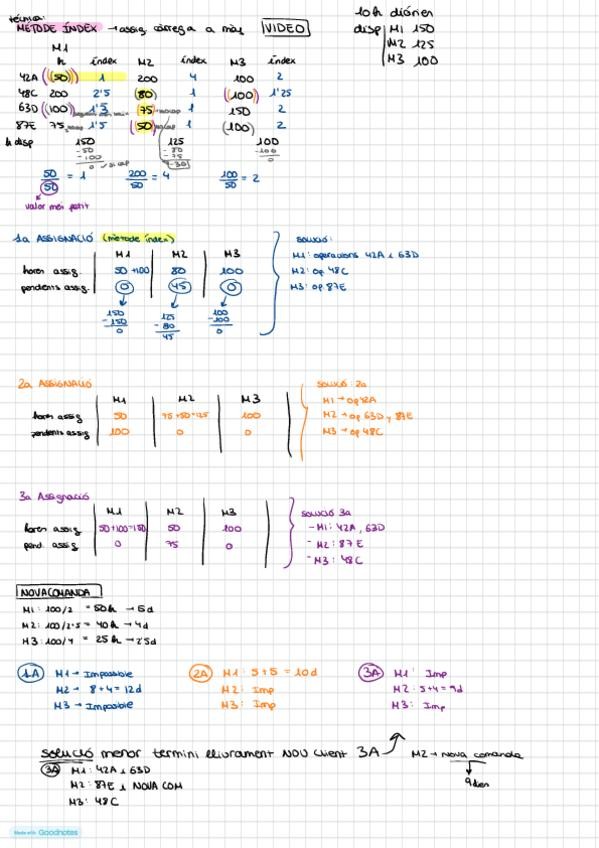 tècnica:
MÈTODE ÍNDEX → assig. càrrega a màq VIDEO
10h diàries
disp M1 150
M2 125
M3 100
M1
h índex M2 índex M3 índex
42A ((50)) 1 200 4 100 2
48C 200 2'5 (80) 1 (100) 1'25
63D (100) 1'3 75 1 150 2
87E 75 1'5 (50) 1 (100) 2
h disp 150 125 100
-50 -80 -100
-100 -75 0
0 -30
50/50 = 1 200/50 = 4 100/50 = 2
valor més petit
1a ASSIGNACIÓ (mètode índex)
M1 M2 M3
hores assig. 50+100 80 100
pendents assig. 0 45 0
150 125 100
-150 -80 -100
0 45 0
solució:
M1: operacions 42A i 63D
M2: op 48C
M3: op 87E
2a ASSIGNACIÓ
M1 M2 M3
hores assig 50 75+50=125 100
pendents assig 100 0 0
solució 2a
M1 → op42A
M2 → op 63D y 87E
M3 → op 48C
3a Assignació
M1 M2 M3
hores assig 50+100=150 50 100
pend. assig 0 75 0
solució 3a
- M1: 42A, 63D
- M2: 87E
- M3: 48C
NOVA COMANDA
M1: 100/2 = 50h → 5d
M2: 100/2'5 = 40h → 4d
M3: 100/4 = 25h → 2'5d
1A M1 → Impossible
M2 → 8+4=12d
M3 → Impossible
2A M1: 5+5=10d
M2: Imp
M3: Imp
3A M1: Imp
M2: 5+4=9d
M3: Imp
solució menor termini lliurament NOU client 3A M2 → nova comanda
9 dies
3A M1: 42A i 63D
M2: 87E i NOVA COM
M3: 48C
Made with Goodnotes